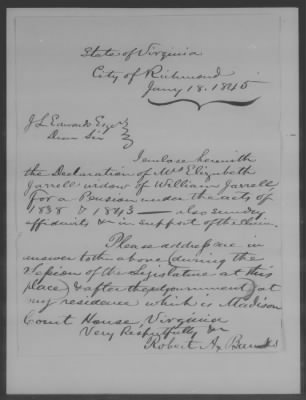 State of Virginia
City of Richmond
Jany 18. 1845
J L Edwards Esqr
Dear Sir
I enclose herewith
the Declaration of Mrs Elizabeth
Jarrell widow of William Jarrell
for a Pension under the acts of
1838 & 1843 — also sundry
affidavits &c in support of the claim.
Please address me in
answer to the above (during the
Session of the Legislature at this
place) & after the adjournment) at
my residence which is Madison
Court House, Virginia
Very Respectfully &c
Robert A